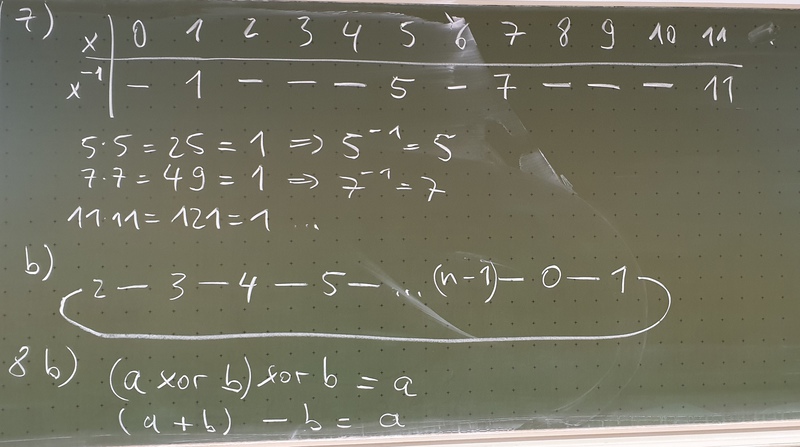 7) x | 0 1 2 3 4 5 6 7 8 9 10 11
x⁻¹ | — 1 — — — 5 — 7 — — — 11
5·5 = 25 = 1 ⇒ 5⁻¹ = 5
7·7 = 49 = 1 ⇒ 7⁻¹ = 7
11·11 = 121 = 1 ...
b)
2 — 3 — 4 — 5 — ... (n-1) — 0 — 1
8 b) (a xor b) xor b = a
(a + b) - b = a